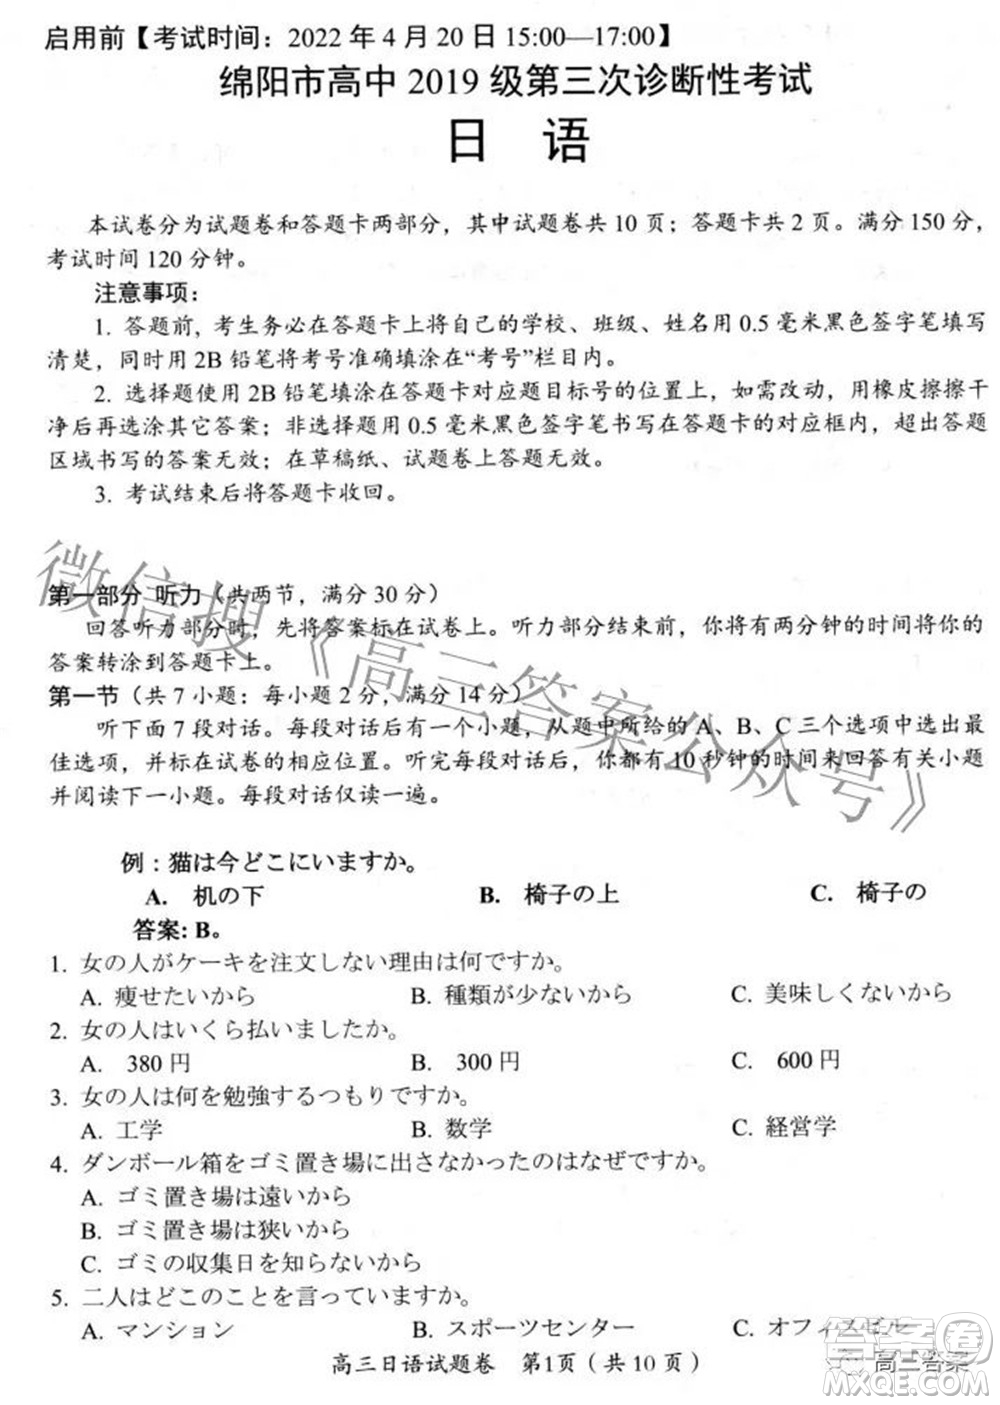 启用前【考试时间：2022 年 4 月 20 日 15:00—17:00】
绵阳市高中 2019 级第三次诊断性考试
日 语
本试卷分为试题卷和答题卡两部分，其中试题卷共 10 页；答题卡共 2 页。满分 150 分，
考试时间 120 分钟。
注意事项：
1. 答题前, 考生务必在答题卡上将自己的学校、班级、姓名用 0.5 毫米黑色签字笔填写
清楚，同时用 2B 铅笔将考号准确填涂在“考号”栏目内。
2. 选择题使用 2B 铅笔填涂在答题卡对应题目标号的位置上，如需改动，用橡皮擦擦干
净后再选涂其它答案；非选择题用 0.5 毫米黑色签字笔书写在答题卡的对应框内，超出答题
区域书写的答案无效；在草稿纸、试题卷上答题无效。
3. 考试结束后将答题卡收回。
微信搜《高三答案公众号》
第一部分 听力（共两节，满分 30 分）
回答听力部分时，先将答案标在试卷上。听力部分结束前，你将有两分钟的时间将你的
答案转涂到答题卡上。
第一节（共 7 小题：每小题 2 分，满分 14 分）
听下面 7 段对话。每段对话后有一个小题，从题中所给的 A、B、C 三个选项中选出最
佳选项，并标在试卷的相应位置。听完每段对话后，你都有 10 秒钟的时间来回答有关小题
并阅读下一小题。每段对话仅读一遍。
例：猫は今どこにいますか。
A. 机の下 B. 椅子の上 C. 椅子の
答案: B。
1. 女の人がケーキを注文しない理由は何ですか。
A. 痩せたいから B. 種類が少ないから C. 美味しくないから
2. 女の人はいくら払いましたか。
A. 380 円 B. 300 円 C. 600 円
3. 女の人は何を勉強するつもりですか。
A. 工学 B. 数学 C. 経営学
4. ダンボール箱をゴミ置き場に出さなかったのはなぜですか。
A. ゴミ置き場は遠いから
B. ゴミ置き場は狭いから
C. ゴミの収集日を知らないから
5. 二人はどこのことを言っていますか。
A. マンション B. スポーツセンター C. オフィスビル
高三日语试题卷 第1页（共 10 页）
答案圈
高三答案
MXQE.COM